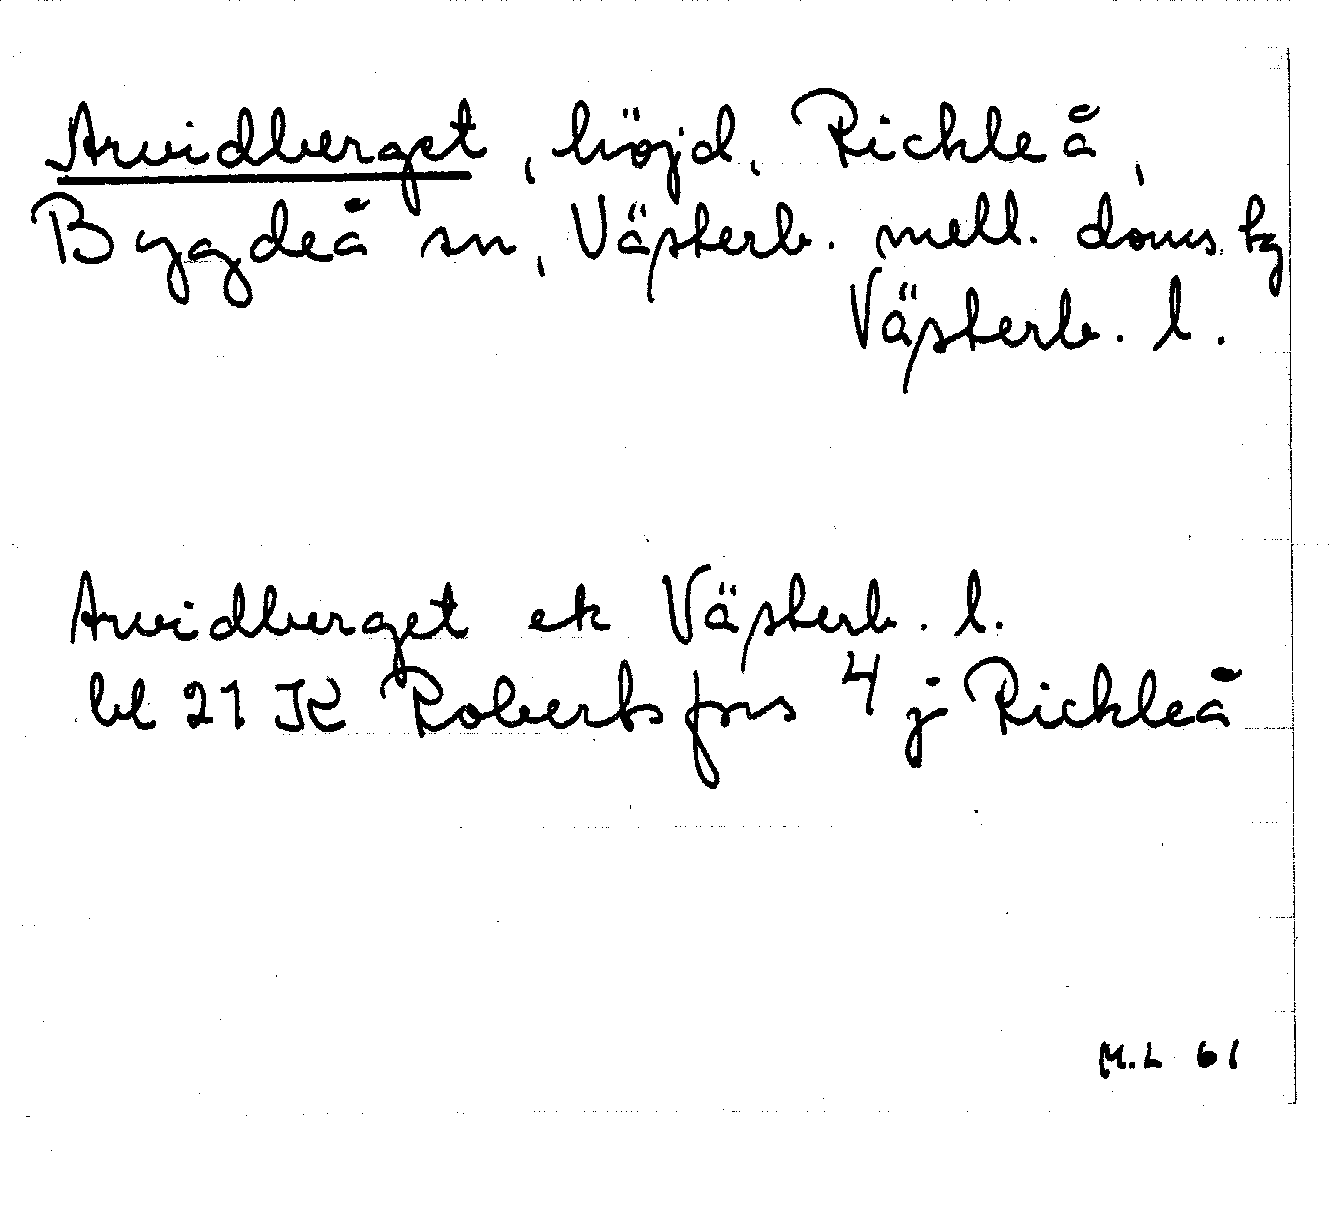 Arvidberget, höjd, Rickleå,
Bygdeå sn, Västerb. mell. doms. tg
Västerb. l.
Arvidberget ek Västerb. l.
bl 21 K Robertsfors 4 j Rickleå
M.L 61